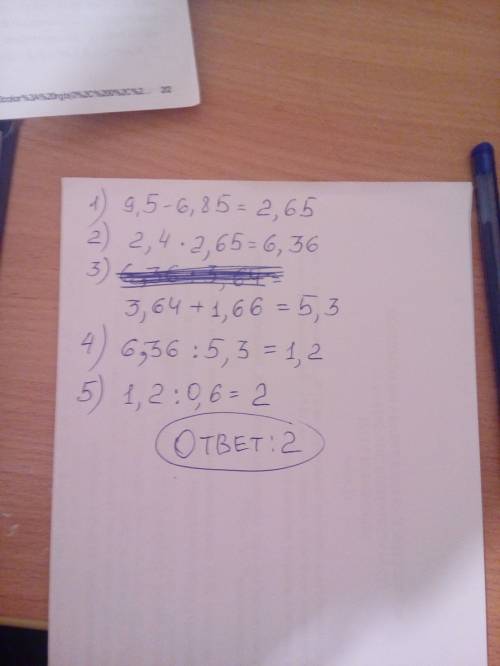 1) 9,5-6,85=2,65
2) 2,4·2,65=6,36
3) 6,36:3,64=
3,64+1,66=5,3
4) 6,36:5,3=1,2
5) 1,2:0,6=2
ОТВЕТ:2